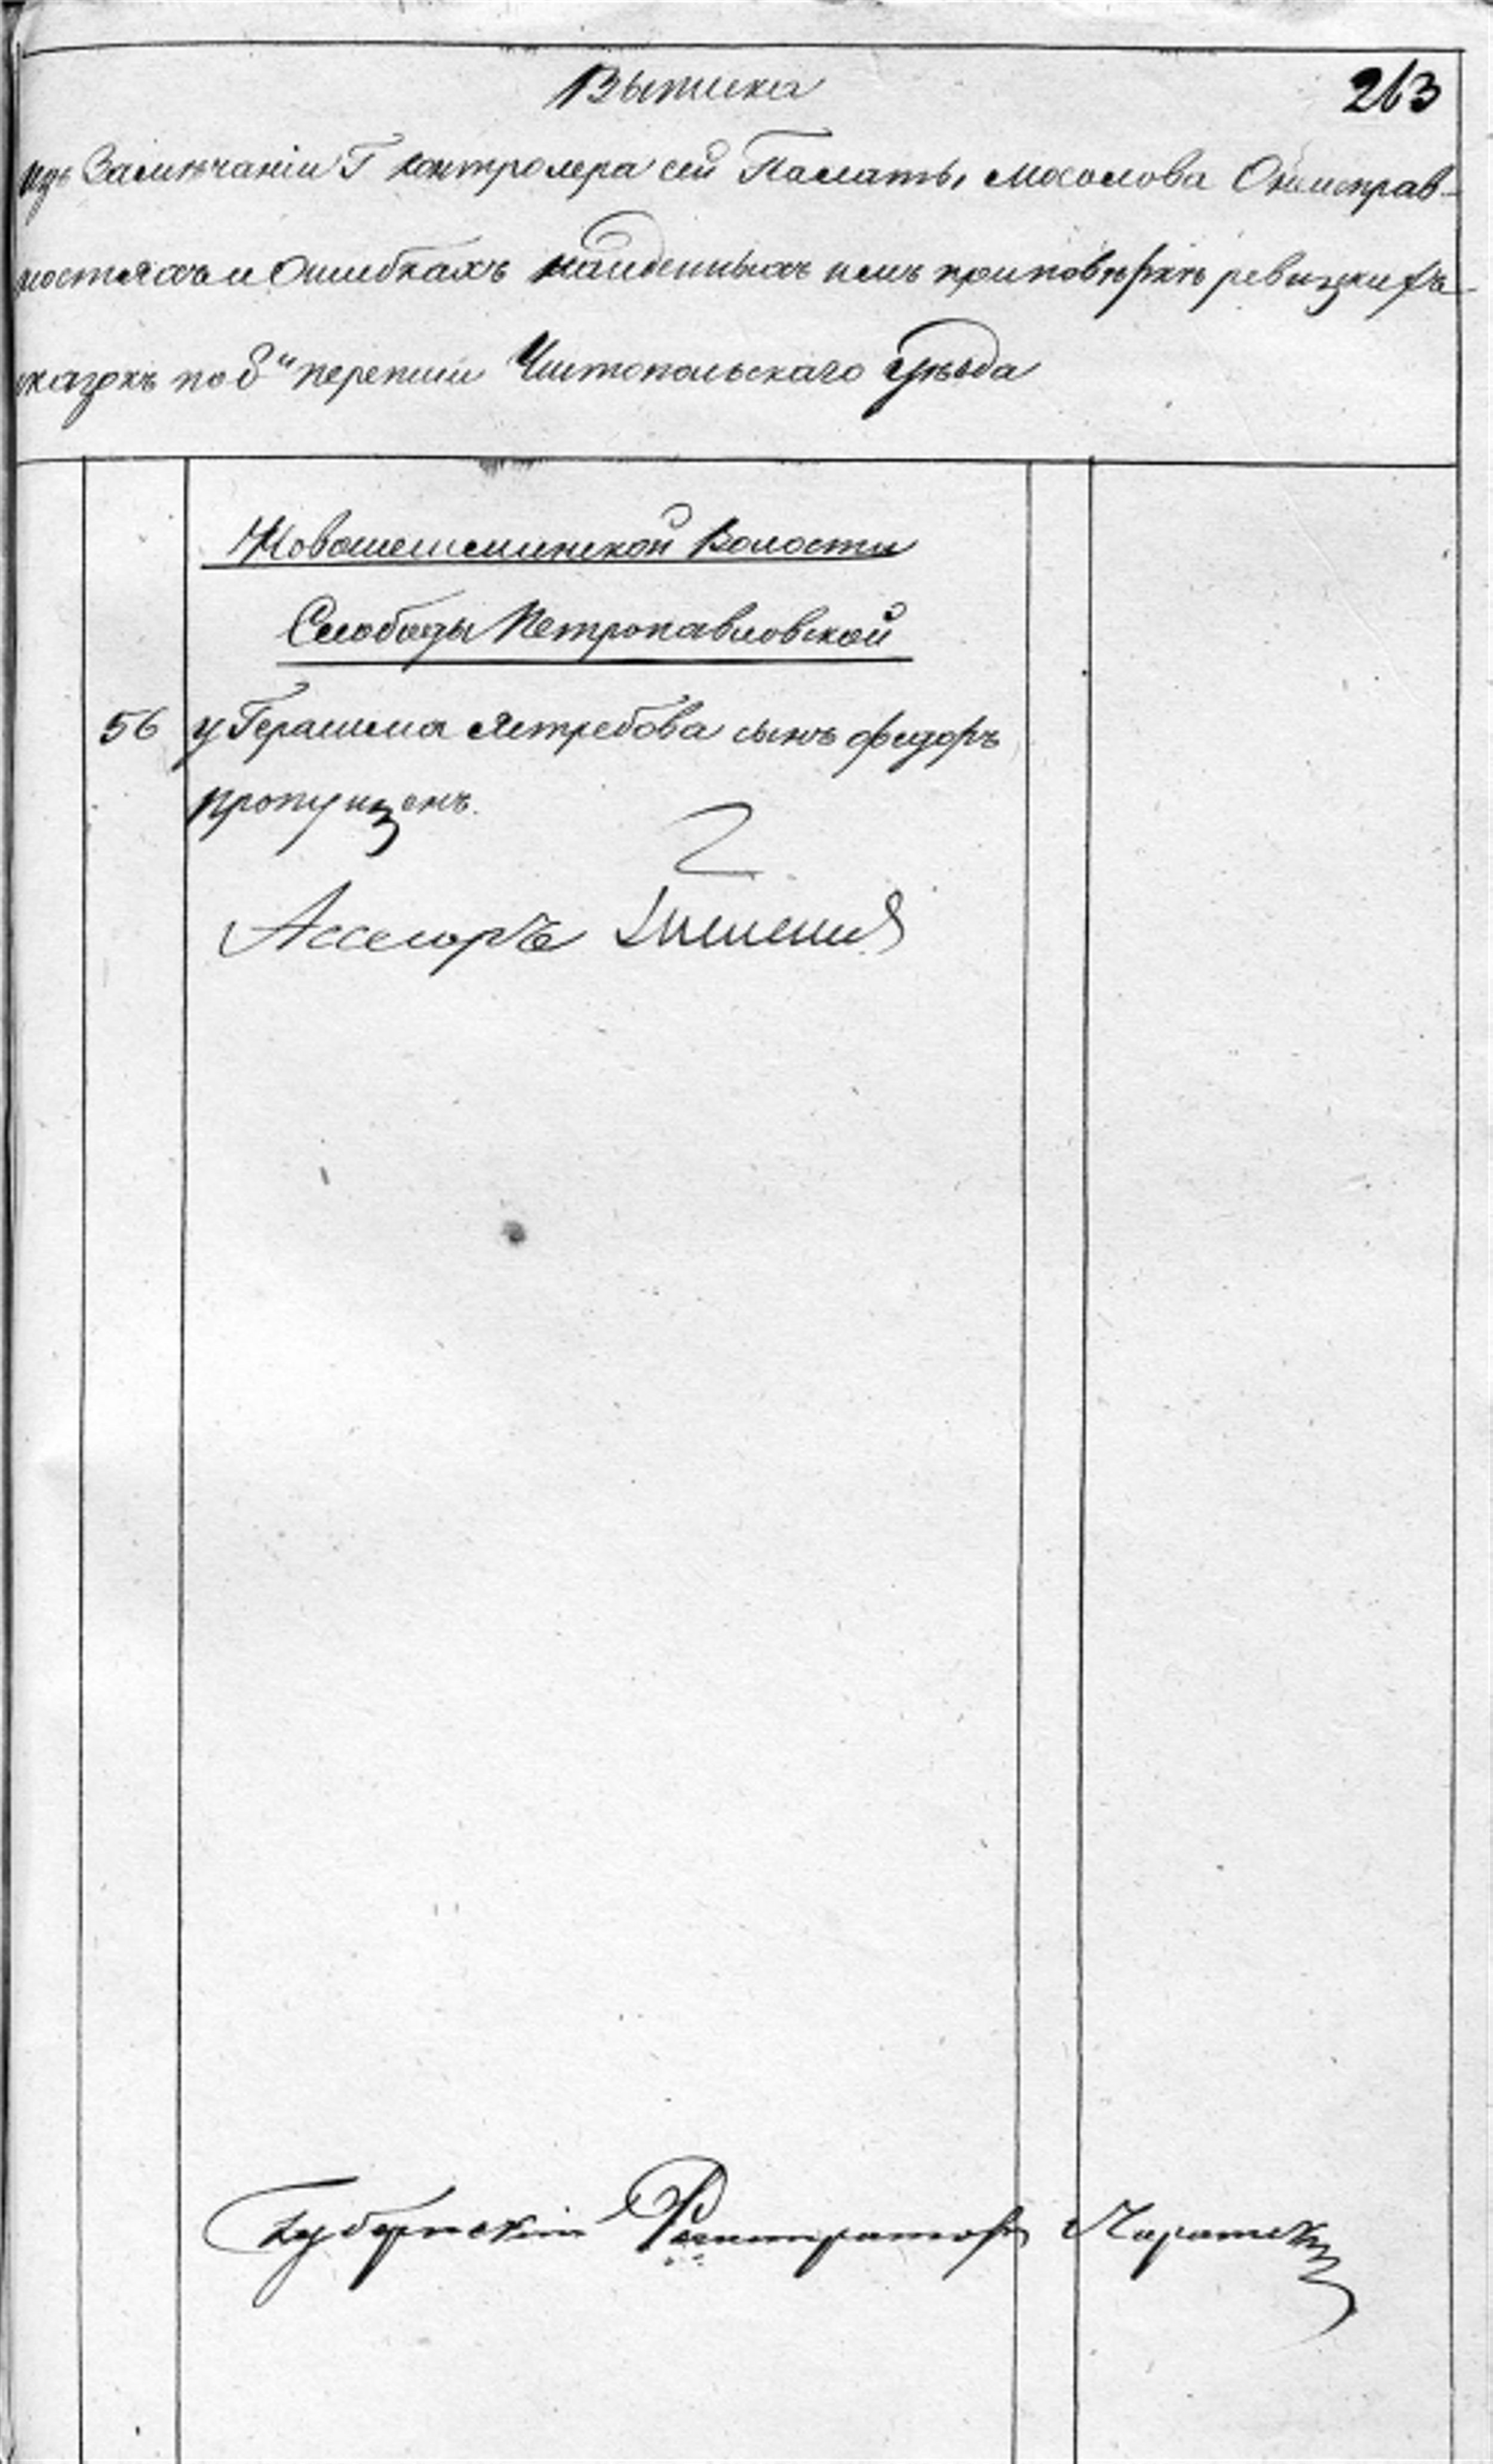 Выписка
263
изъ Замѣчаніи Г контролера сей Палаты, Мосолова О неисправ-
ностяхъ и Ошибкахъ найденныхъ имъ при повѣркѣ ревизкихъ
сказокъ по 8й переписи Чистопольскаго уѣзда
Новошешминской Волости
Слободы Петропавловской
56 у Герасима Ястребова сынъ Федоръ
пропущенъ.
Ассесоръ
Губернскій Регистраторъ